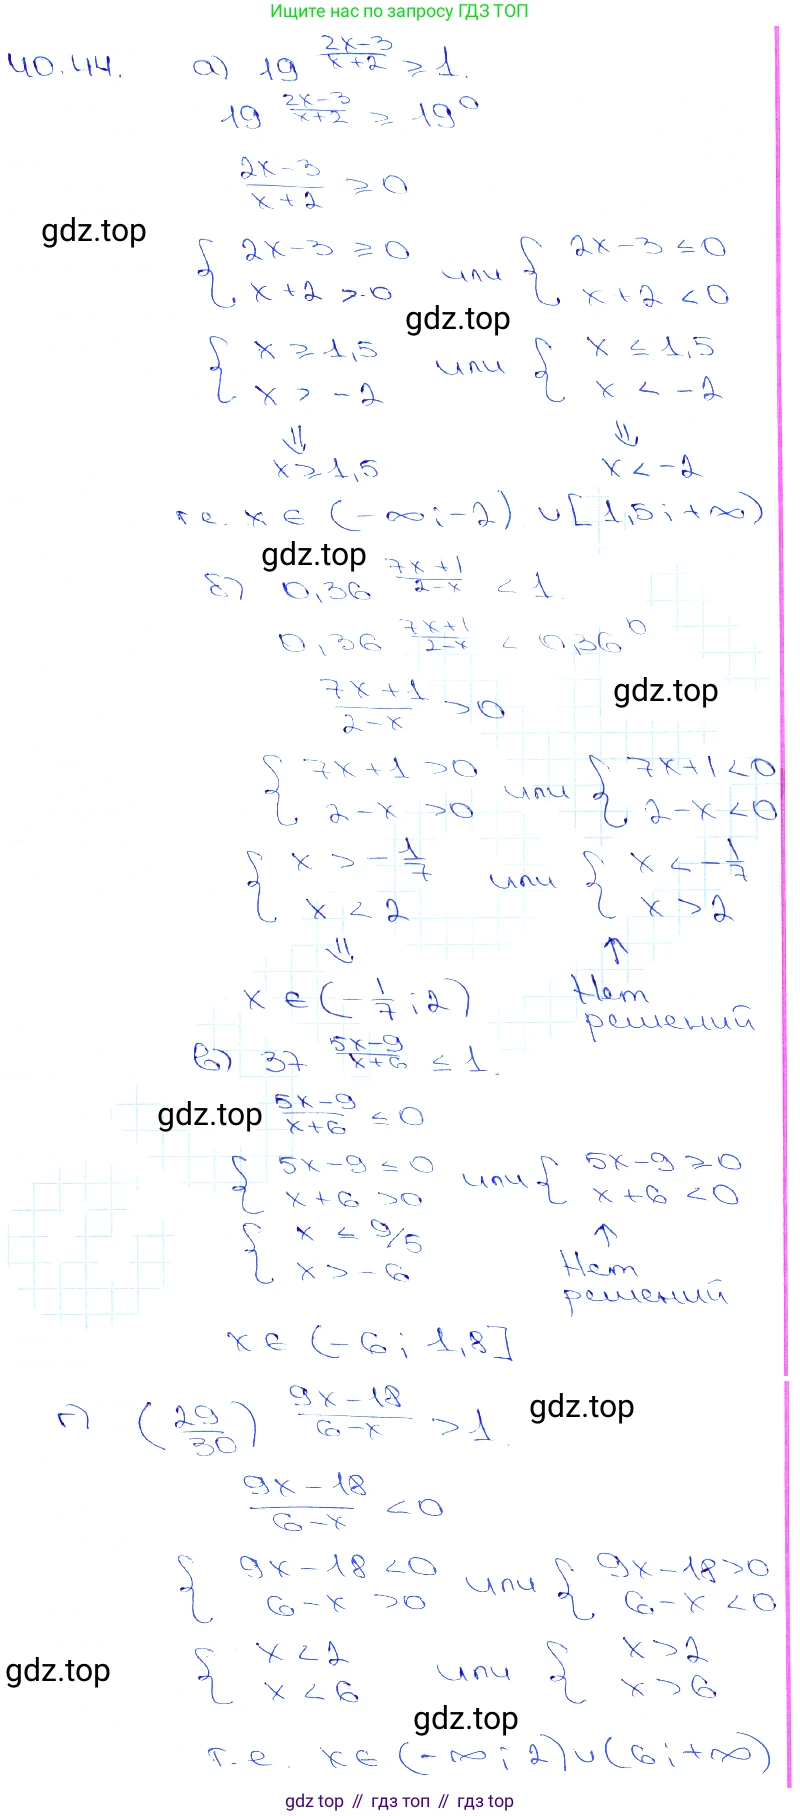 Ищите нас по запросу ГДЗ ТОП
40.44. а) 19^{\frac{2x-3}{x+2}} ≥ 1.
19^{\frac{2x-3}{x+2}} ≥ 19^0
\frac{2x-3}{x+2} ≥ 0
gdz.top
{ 2x-3 ≥ 0 или { 2x-3 ≤ 0
x+2 > 0 x+2 < 0
gdz.top
{ x ≥ 1,5 или { x ≤ 1,5
x > -2 x < -2
⇓ ⇓
x ≥ 1,5 x < -2
т.е. x ∈ (-∞; -2) ∪ [1,5; +∞)
gdz.top
б) 0,36^{\frac{7x+1}{2-x}} < 1.
0,36^{\frac{7x+1}{2-x}} < 0,36^0
\frac{7x+1}{2-x} > 0
gdz.top
{ 7x+1 > 0 или { 7x+1 < 0
2-x > 0 2-x < 0
{ x > -\frac{1}{7} или { x < -\frac{1}{7}
x < 2 x > 2
⇓ ↑
x ∈ (-\frac{1}{7}; 2) Нет
решений
в) 37^{\frac{5x-9}{x+6}} ≤ 1.
gdz.top
\frac{5x-9}{x+6} ≤ 0
{ 5x-9 ≤ 0 или { 5x-9 ≥ 0
x+6 > 0 x+6 < 0
{ x ≤ 9/5 ↑
x > -6 Нет
решений
x ∈ (-6; 1,8]
г) (\frac{29}{30})^{\frac{9x-18}{6-x}} > 1.
gdz.top
\frac{9x-18}{6-x} < 0
{ 9x-18 < 0 или { 9x-18 > 0
6-x > 0 6-x < 0
{ x < 2 или { x > 2
x < 6 x > 6
gdz.top
gdz.top
т.е. x ∈ (-∞; 2) ∪ (6; +∞)
gdz top // гдз топ // gdz top